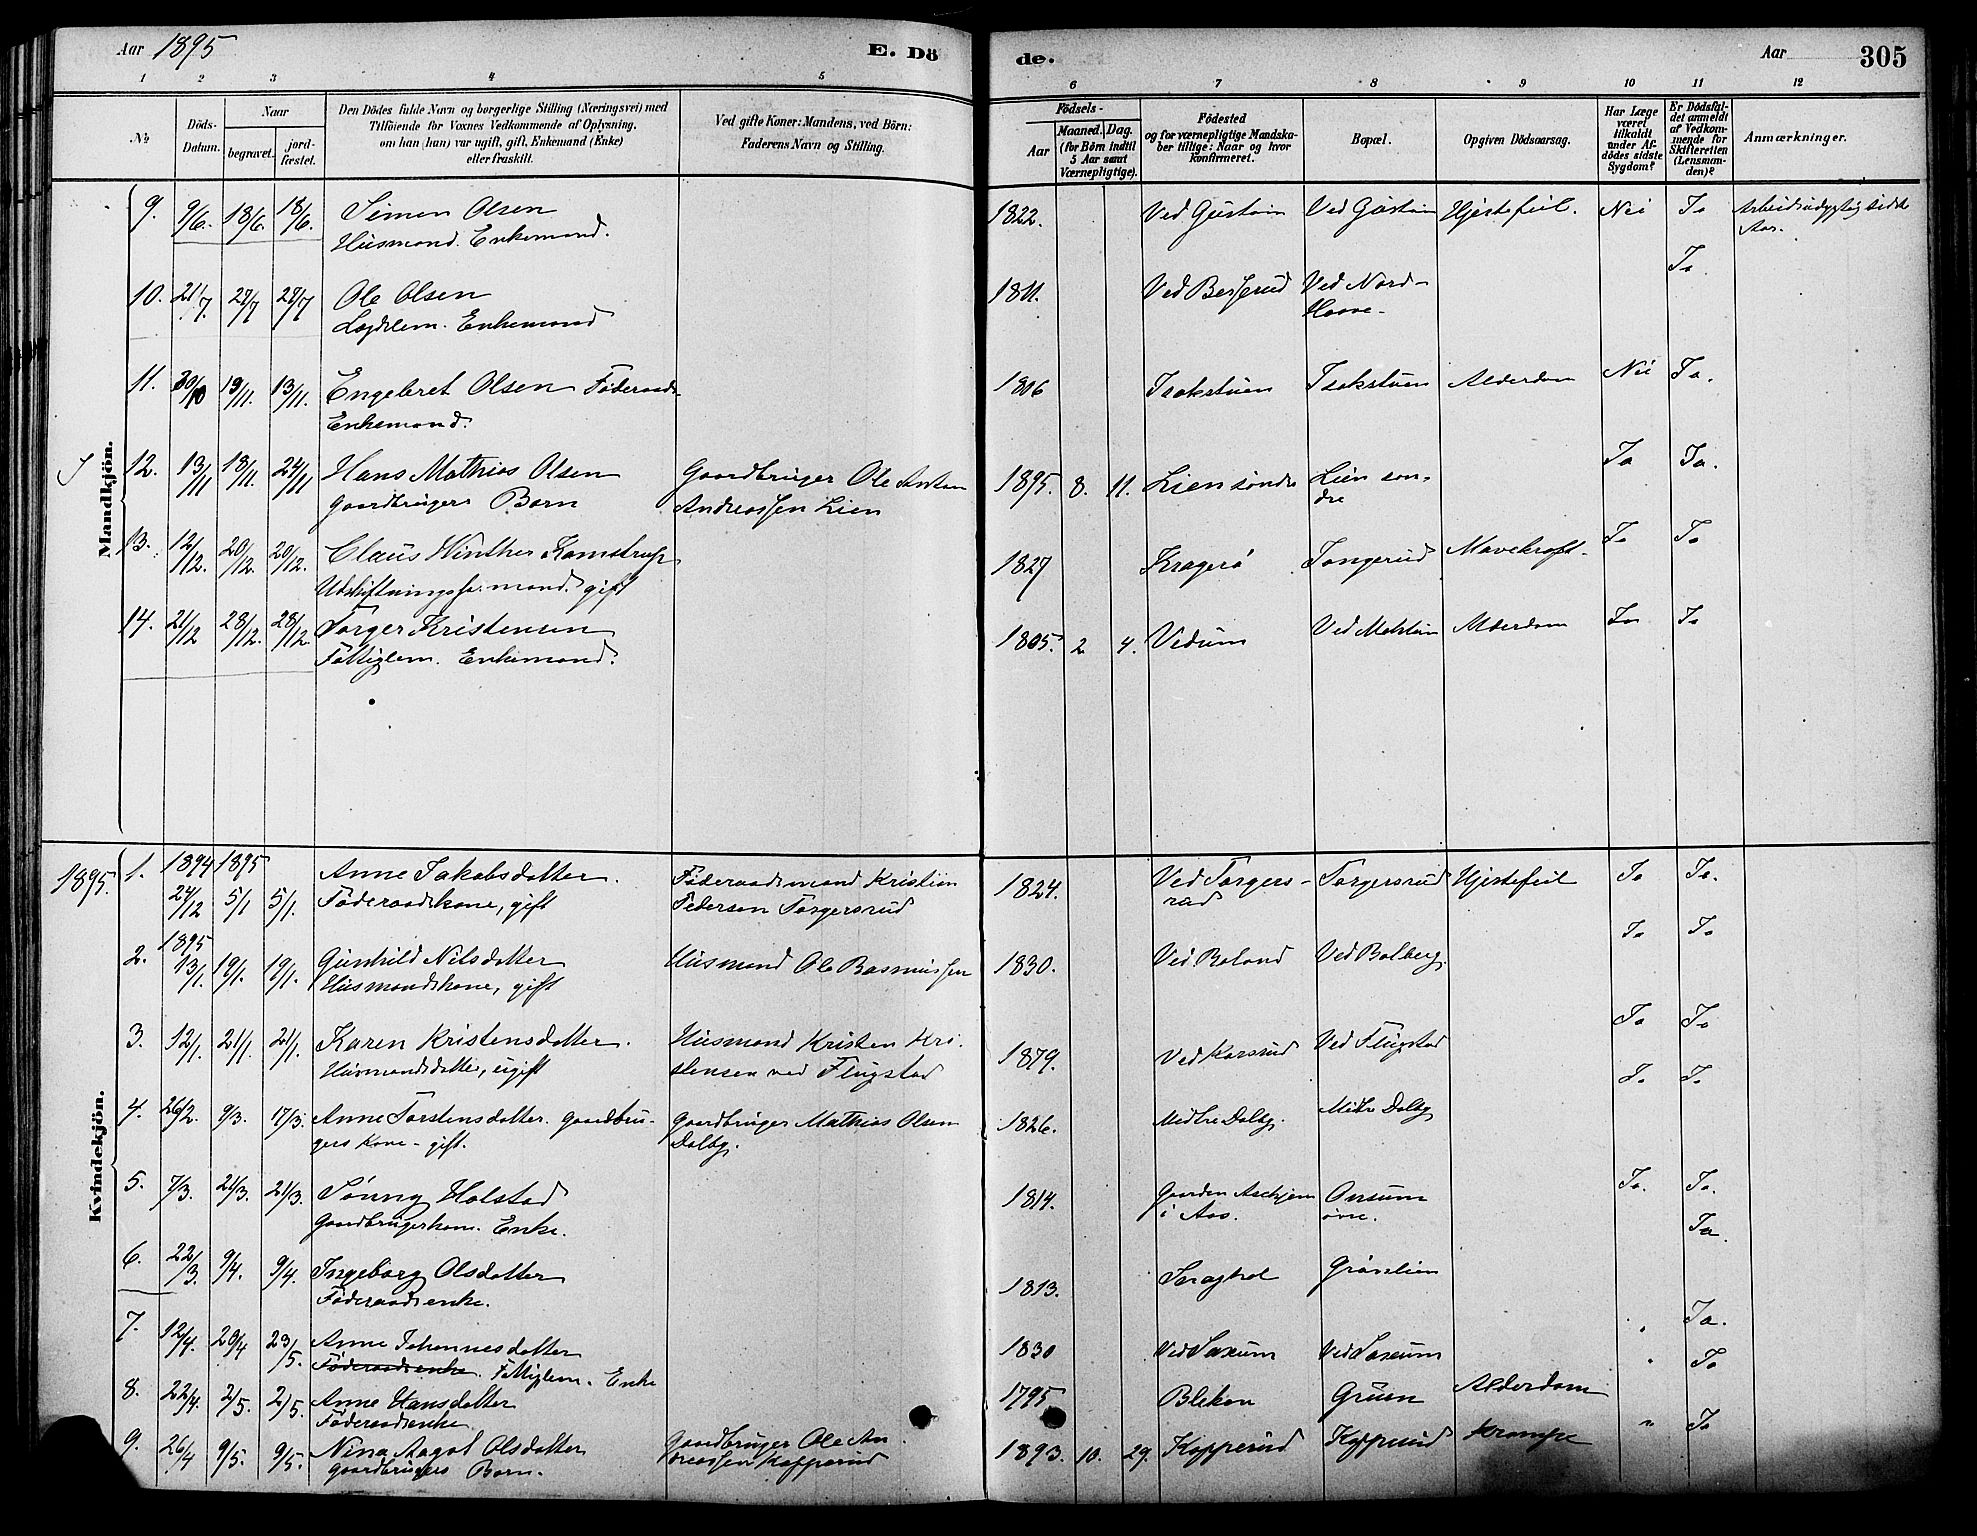 Aar 1895
E. Dö
de.
Aar
305
1 2 3 4 5 6 7 8 9 10 11 12
№
Döds-
Datum.
Naar
begravet.
jord-
fæstet.
Den Dödes fulde Navn og borgerlige Stilling (Næringsvei) med
Tilföiende for Voxnes Vedkommende af Oplysning,
om han (hun) var ugift, gift, Enkemand (Enke)
eller fraskilt.
Ved gifte Koner: Mandens, ved Börn:
Faderens Navn og Stilling.
Födsels-
Aar
Maaned. Dag.
(for Börn indtil
5 Aar samt
Værnepligtige).
Födested
og for værnepligtige Mandska-
ber tillige: Naar og hvor
konfirmeret.
Bopæl.
Opgiven Dödsaarsag.
Har Læge
været
tilkaldt
under Af-
dödes sidste
Sygdom?
Er Dödsfal-
det anmeldt
af Vedkom-
mende for
Skifteretten
(Lensman-
den)?
Anmærkninger.
Mandkjön.
9. 9/6. 18/6. 18/6. Simen Olsen
Husmand. Enkemand.
1822. Ved Gustum Ved Gustum Hjertefeil. Nei Ja
Aar.
10. 21/7. 27/7 27/7 Ole Olsen
Lægdslem. Enkemand
1811. Ved Berserud Ved Nord-
Haave-
Ja.
11. 30/10 13/11. 13/11. Engebret Olsen Föderaads
Enkemand.
1806 Isakstuen Isakstuen Alderdom Nei Ja.
12. 13/11 18/11. 24/11 Hans Mathias Olsen
Gaardbrugers Barn
Gaardbruger Ole Anton
Andreassen Lien
1895. 8. 11. Lien söndre Lien sön-
dre
Ja Ja.
13. 12/12. 20/12. 20/12. Claus Winther Kamstrup
Udskiftningsformand. gift
1827 Kragerö Tongerud Mavekræft. Ja Ja
14. 21/12 28/12. 28/12. Torger Kristensen
Fattiglem. Enkemand.
1805. 2 4. Vedum Ved Mehlum Alderdom Ja Ja
Kvindekjön.
1895. 1. 1894 1895
24/12 5/1 5/1. Anne Jakobsdatter.
Föderaadskone, gift
Föderaadsmand Kristian
Pedersen Torgersrud
1824. Ved Torgers-
rud
Torgersrud Hjertefeil Ja Ja.
2. 1895
13/1. 19/1. 19/1. Gunhild Nilsdatter
Husmandskone, gift
Husmand Ole Rasmussen
1830. Ved Boland Ved Bolberg. Ja Ja
3. 12/1. 21/1. 21/1. Karen Kristensdatter.
Husmandsdatter, ugift
Husmand Kristen Kri-
stensen ved Flugstad
1879. Ved Korsrud Ved Flugstad Ja Ja
4. 26/2. 9/3. 17/3. Anne Torstensdatter. Gaardbru-
gers Kone - gift.
Gaardbruger Mathias Olsen
Dalby.
1826. Midtre Dalby. Midtre Dalby Ja Ja
5. 7/3. 21/3. 21/3. Sönny Holstad
Gaardbrugerkone. Enke.
1814. Gaarden Askjem
i Aas.
Onsum
övre.
Ja. Ja.
6. 22/3. 9/4. 9/4. Ingeborg Olsdatter
Föderaadsenke.
1813. Grönlien Ja.
7. 12/4. 20/4 23/5. Anne Johannesdatter
Föderaadsenke. Fattiglem. Enke
1830 Ved Saxum Ved Saxum Ja.
8. 22/4. 2/5. 2/5. Anne Hansdatter
Föderaadsenke
1795 Bleken Gruen Alderdom Ja
9. 26/4 9/5. 9/5. Nina Aagot Olsdatter
Gaardbrugers Barn.
Gaardbruger Ole An-
dreassen Kopperud
1893. 10. 29. Kopperud Kopperud Krampe " Ja